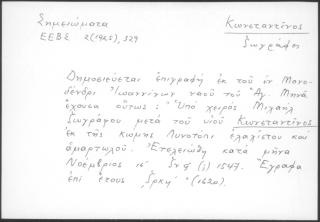 Σημειώματα
ΕΕΒΣ 2(1925), 329
Κωνσταντῖνος
ζωγράφος
Δημοσιεύεται ἐπιγραφὴ ἐκ τοῦ ἐν Μονο-
δένδρι Ἰωαννίνων ναοῦ τοῦ Ἁγ. Μηνᾶ
ἔχουσα οὕτως: "Ὑπὸ χειρὸς Μιχαὴλ
ζωγράφου μετὰ τοῦ υἱοῦ Κωνσταντῖνος
ἐκ τῆς κώμης Λυνοτόπι ἐλαχίστου καὶ
ἁμαρτωλοῦ. Ἐτελειώθη κατὰ μῆνα
Νοέμβριος 1547. Ἔγραφα
ἐπὶ ἔτους ͵ζρκη΄" (1620).